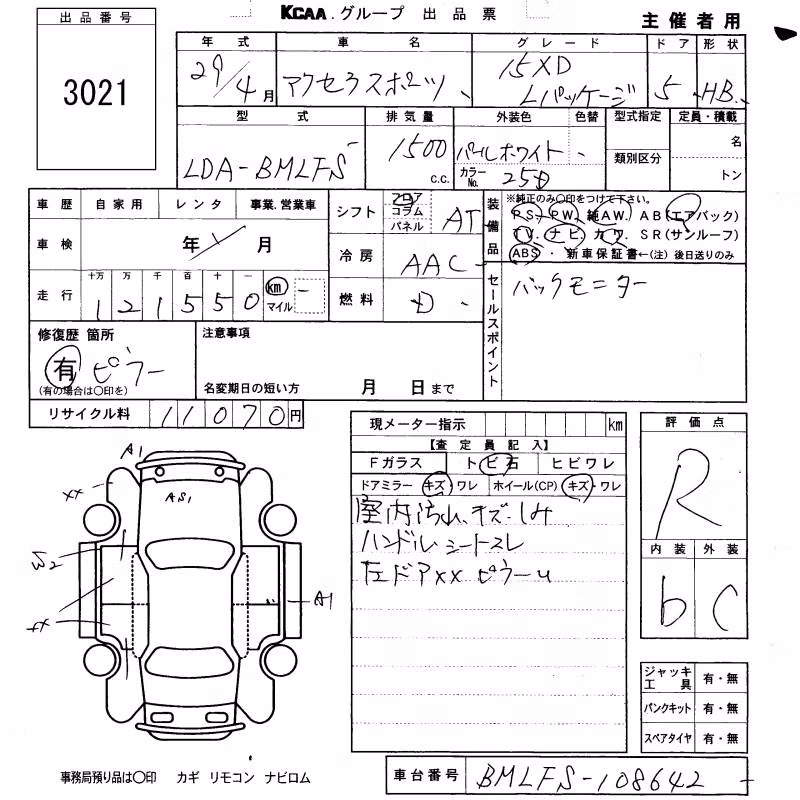 KCAA.グループ 出品票
主催者用
出品番号
3021
年式 車名 グレード ドア 形状
29/4月 アクセラスポーツ 15XD Lパッケージ 5 HB
型式 排気量 外装色 色替 型式指定 定員・積載
LDA-BMLFS 1500 c.c. パールホワイト 類別区分 名
カラーNo. 25D トン
車歴 自家用 レンタ 事業.営業車
シフト フロア コラム パネル AT
装備品 ※純正のみ○印をつけて下さい。
PS. PW. 純AW. AB(エアバック)
TV. ナビ. カワ. SR(サンルーフ)
ABS・新車保証書←(注)後日送りのみ
車検 年 月
冷房 AAC
走行 十万 万 千 百 十 一
121550 km マイル
燃料 D
セールスポイント
バックモニター
修復歴 箇所
有 ピラー
(有の場合は○印を)
注意事項
名変期日の短い方 月 日まで
リサイクル料 11070円
現メーター指示 km
【査定員記入】
Fガラス トビ石 ヒビワレ
ドアミラー キズ・ワレ ホイール(CP) キズ・ワレ
室内汚れ、キズ・しみ
ハンドル シートスレ
左ドアxx ピラーu
評価点
R
内装 外装
b C
A1
xx
AS1
W2
xx
A1
ジャッキ工具 有・無
パンクキット 有・無
スペアタイヤ 有・無
事務局預り品は○印 カギ リモコン ナビロム
車台番号 BMLFS-108642